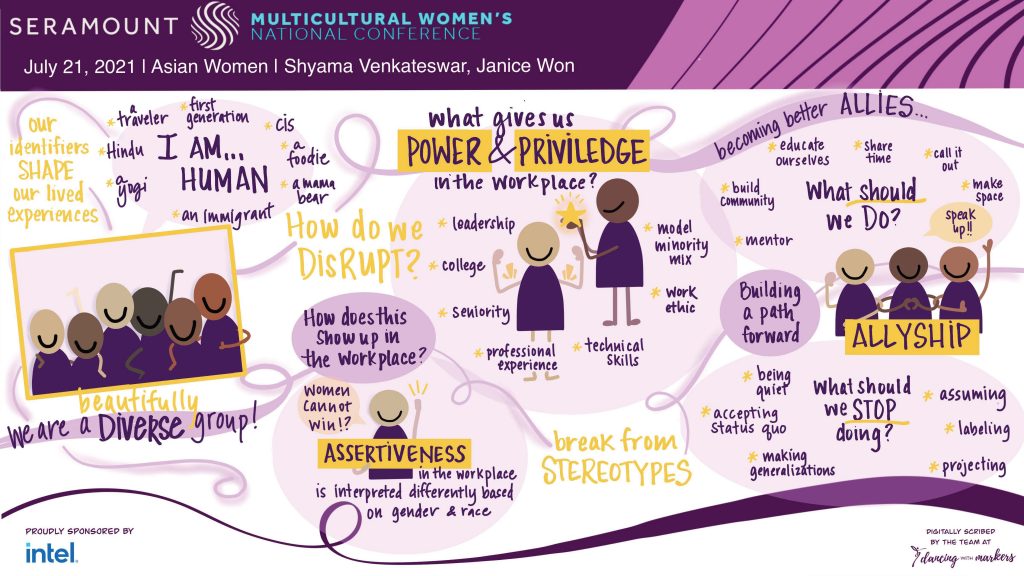 SERAMOUNT
MULTICULTURAL WOMEN'S
NATIONAL CONFERENCE
July 21, 2021 | Asian Women | Shyama Venkateswar, Janice Won
our
identifiers
SHAPE
our lived
experiences
a traveler
first
generation
cis
Hindu
I AM...
HUMAN
a
foodie
a
yogi
a mama
bear
an immigrant
beautifully
we are a DIVERSE group!
How do we
DISRUPT?
what gives us
POWER & PRIVILEDGE
in the workplace?
leadership
college
Seniority
professional
experience
technical
skills
model
minority
mix
work
ethic
How does this
show up in
the workplace?
Women
cannot
win!?
ASSERTIVENESS
in the workplace
is interpreted differently based
on gender & race
break from
STEREOTYPES
becoming better ALLIES...
educate
ourselves
share
time
call it
out
build
community
What should
we DO?
make
space
mentor
speak
up!!
Building
a path
forward
ALLYSHIP
being
quiet
accepting
status quo
making
generalizations
What should
we STOP
doing?
assuming
labeling
projecting
PROUDLY SPONSORED BY
intel.
DIGITALLY SCRIBED
BY THE TEAM AT
dancing with markers